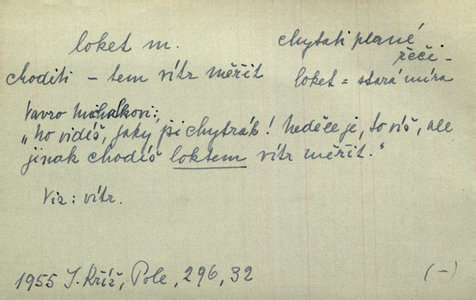 loket m.
chytati plané
řeči -
choditi - tem vítr měřit
loket = stará míra
Vavro Michalkovi:
„No vidíš, jaký si chytrák! Neděle je, to víš, ale
jinak chodíš loktem vítr měřit."
Viz: vítr.
1955 J. Kříž, Pole, 296, 32
(-)